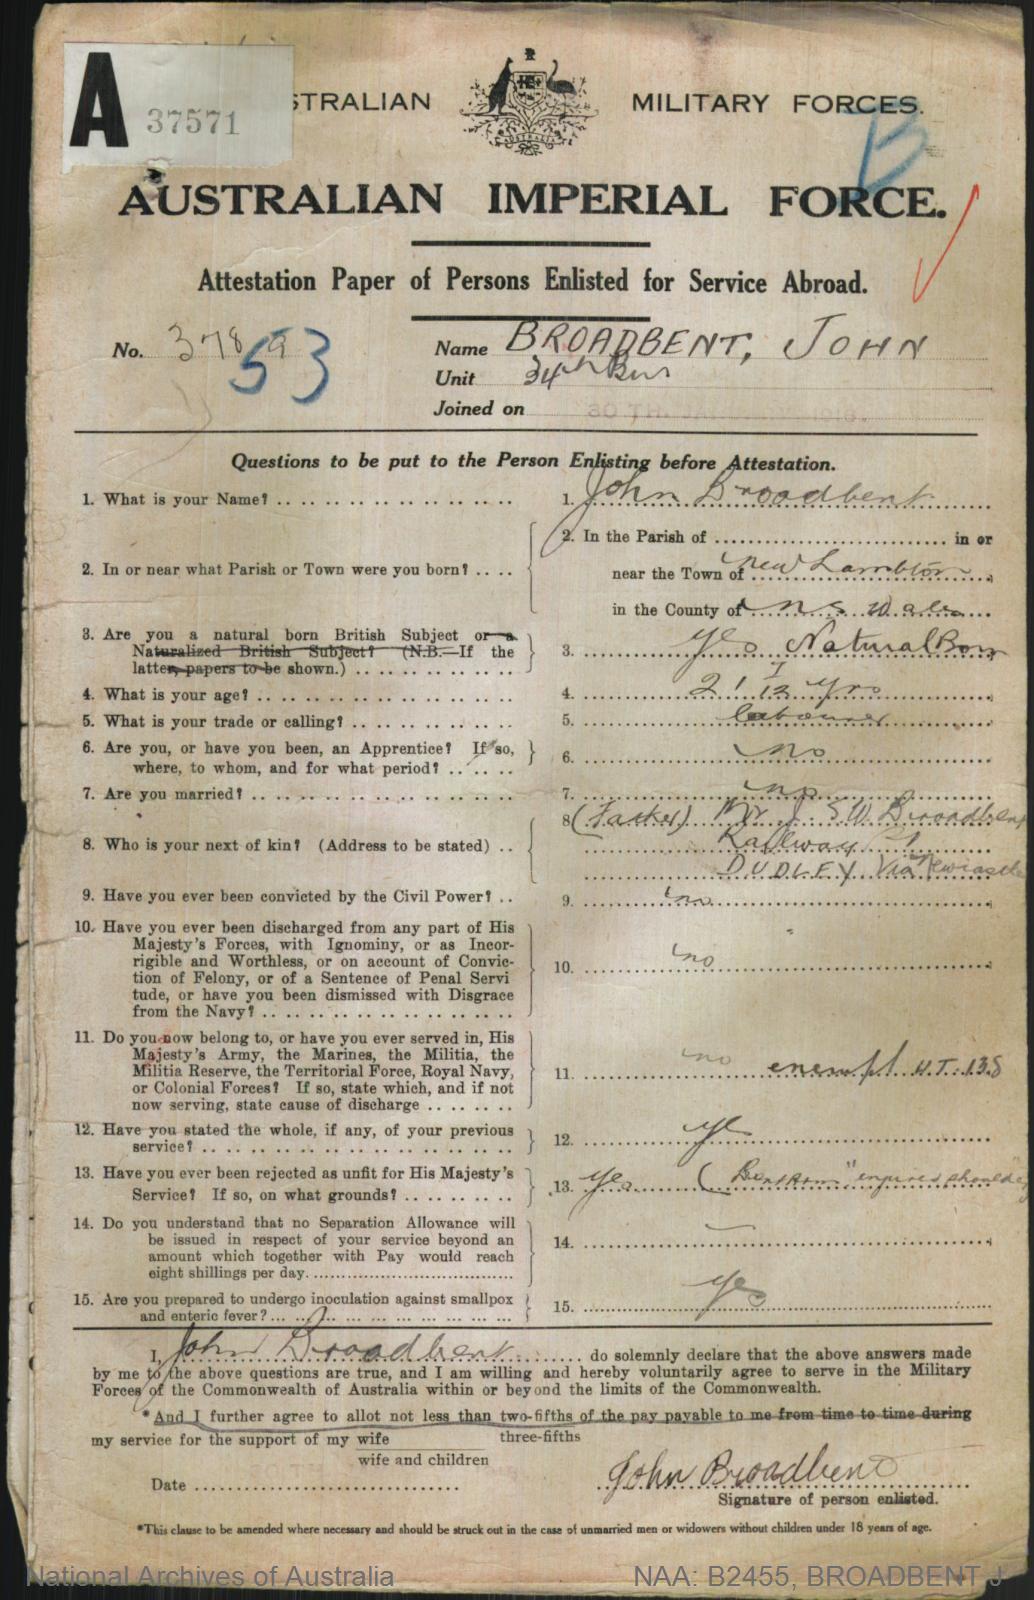 A 37571
STRALIAN MILITARY FORCES.
AUSTRALIA
B
AUSTRALIAN IMPERIAL FORCE.
Attestation Paper of Persons Enlisted for Service Abroad.
No. 3789 53
Name BROADBENT, JOHN
Unit 34th Bn
Joined on
Questions to be put to the Person Enlisting before Attestation.
1. What is your Name? 1. John Broadbent
2. In or near what Parish or Town were you born? 2. In the Parish of in or
near the Town of New Lambton
in the County of N S Wales
3. Are you a natural born British Subject or a
Naturalized British Subject? (N.B.—If the
latter, papers to be shown.) 3. yes Natural Born
4. What is your age? 4. 21 1/12 yrs
5. What is your trade or calling? 5. labourer
6. Are you, or have you been, an Apprentice? If so,
where, to whom, and for what period? 6. no
7. Are you married? 7. no
8. Who is your next of kin? (Address to be stated) 8. (Father) Mr J. S W. Broadbent
Railway
DUDLEY Via Newcastle
9. Have you ever been convicted by the Civil Power? 9. no
10. Have you ever been discharged from any part of His
Majesty's Forces, with Ignominy, or as Incor-
rigible and Worthless, or on account of Convic-
tion of Felony, or of a Sentence of Penal Servi
tude, or have you been dismissed with Disgrace
from the Navy? 10. no
11. Do you now belong to, or have you ever served in, His
Majesty's Army, the Marines, the Militia, the
Militia Reserve, the Territorial Force, Royal Navy,
or Colonial Forces? If so, state which, and if not
now serving, state cause of discharge 11. no exempt
12. Have you stated the whole, if any, of your previous
service? 12. yes
13. Have you ever been rejected as unfit for His Majesty's
Service? If so, on what grounds? 13. yes injured shoulder
14. Do you understand that no Separation Allowance will
be issued in respect of your service beyond an
amount which together with Pay would reach
eight shillings per day. 14. —
15. Are you prepared to undergo inoculation against smallpox
and enteric fever? 15. yes
I, John Broadbent do solemnly declare that the above answers made
by me to the above questions are true, and I am willing and hereby voluntarily agree to serve in the Military
Forces of the Commonwealth of Australia within or beyond the limits of the Commonwealth.
*And I further agree to allot not less than two-fifths of the pay payable to me from time to time during
three-fifths
my service for the support of my wife
wife and children
Date John Broadbent
Signature of person enlisted.
*This clause to be amended where necessary and should be struck out in the case of unmarried men or widowers without children under 18 years of age.
National Archives of Australia NAA: B2455, BROADBENT J